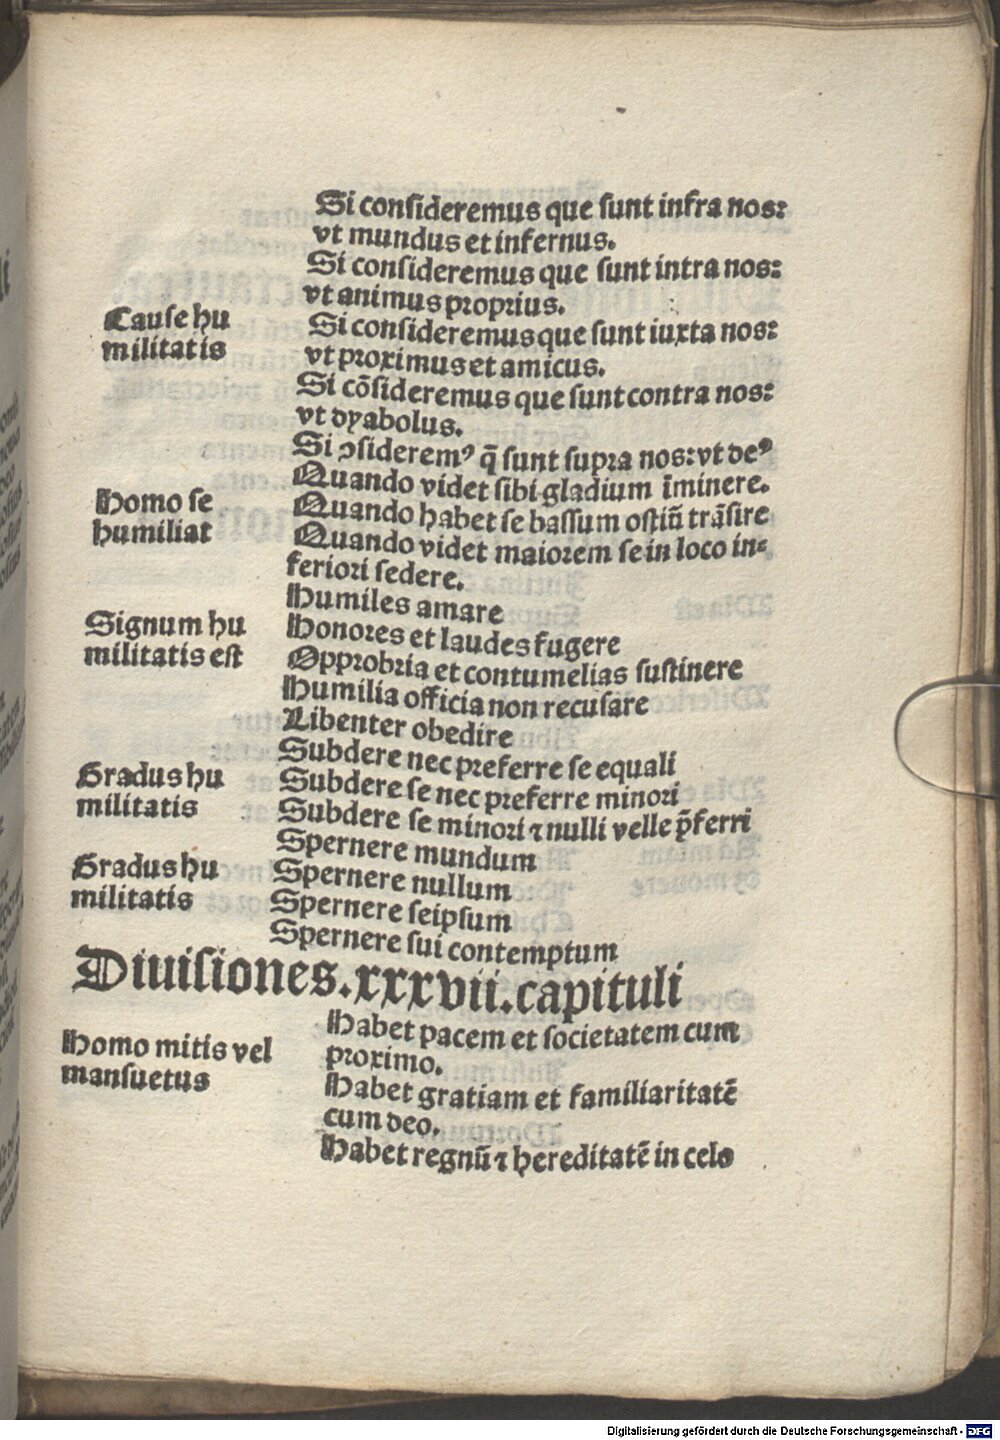 Si consideremus que sunt infra nos:
vt mundus et infernus.
Si consideremus que sunt intra nos:
vt animus proprius.
Cause hu
militatis
Si consideremus que sunt iuxta nos:
vt proximus et amicus.
Si cōsideremus que sunt contra nos:
vt dyabolus.
Si ↄsideremꝰ q̄ sunt supra nos: vt deꝰ
Homo se
humiliat
Quando videt sibi gladium īminere.
Quando habet se bassum ostiū trāsire
Quando videt maiorem se in loco in-
feriori sedere.
Signum hu
militatis est
Humiles amare
Honores et laudes fugere
Opprobria et contumelias sustinere
Humilia officia non recusare
Libenter obedire
Gradus hu
militatis
Subdere nec preferre se equali
Subdere se nec preferre minori
Subdere se minori ⁊ nulli velle p̄ferri
Gradus hu
militatis
Spernere mundum
Spernere nullum
Spernere seipsum
Spernere sui contemptum
Diuisiones.xxxvii.capituli
Homo mitis vel
mansuetus
Habet pacem et societatem cum
proximo.
Habet gratiam et familiaritatē
cum deo.
Habet regnū ⁊ hereditatē in celo
Digitalisierung gefördert durch die Deutsche Forschungsgemeinschaft - DFG